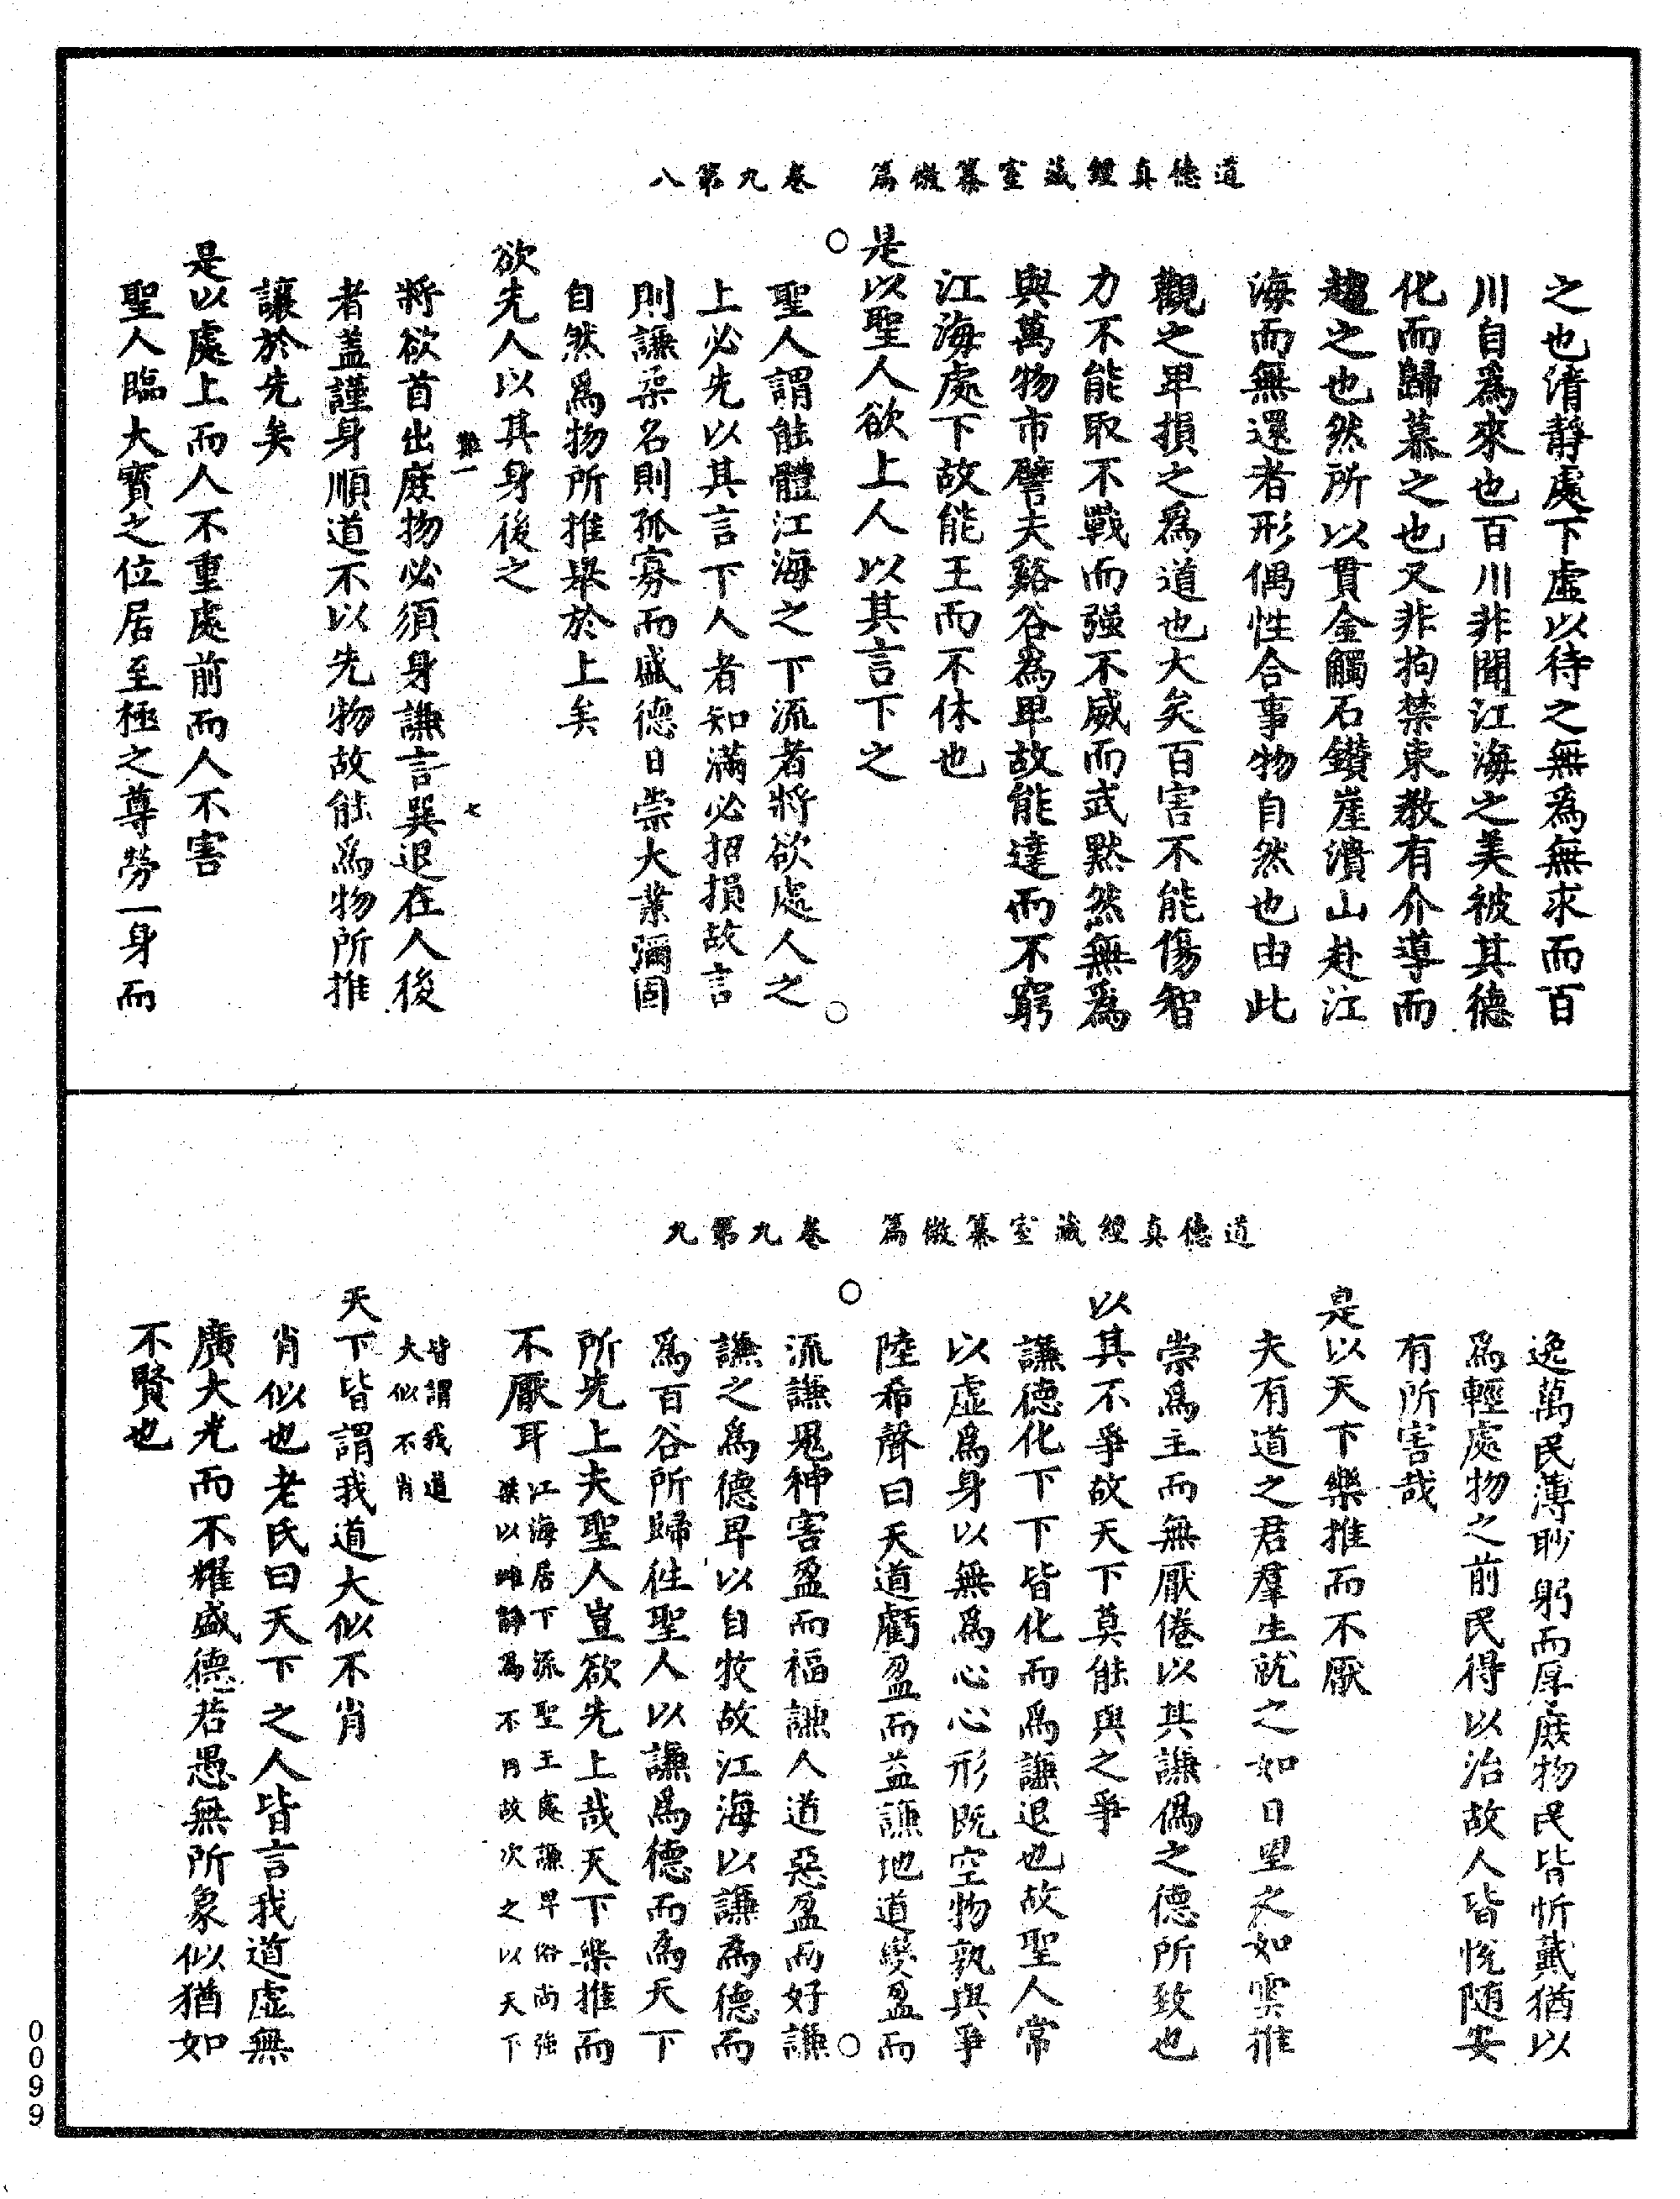 道德真經藏室纂微篇　卷九第八
之也清靜處下虛以待之無為無求而百
川自為來也百川非聞江海之美被其德
化而歸慕之也又非拘禁束教有介導而
趨之也然所以貫金觸石鑽崖潰山赴江
海而無還者形偶性合事物自然也由此
觀之卑損之為道也大矣百害不能傷智
力不能取不戰而强不威而武默然無為
與萬物市譬夫谿谷為卑故能達而不窮
江海處下故能王而不休也
是以聖人欲上人以其言下之
聖人謂能體江海之下流者將欲處人之
上必先以其言下人者知滿必招損故言
則謙柔名則孤寡而盛德日崇大業彌固
自然為物所推舉於上矣
欲先人以其身後之
難一
七
將欲首出庶物必須身謙言巽退在人後
者蓋謹身順道不以先物故能為物所推
讓於先矣
是以處上而人不重處前而人不害
聖人臨大寶之位居至極之尊勞一身而
道德真經藏室纂微篇　卷九第九
逸萬民薄眇躬而厚庶物民皆忻戴猶以
為輕處物之前民得以治故人皆悅隨安
有所害哉
是以天下樂推而不厭
夫有道之君羣生就之如日望之如雲推
崇為主而無厭倦以其謙僞之德所致也
以其不爭故天下莫能與之爭
謙德化下下皆化而為謙退也故聖人常
以虛為身以無為心心形既空物孰與爭
陸希聲曰天道虧盈而益謙地道變盈而
流謙鬼神害盈而福謙人道惡盈而好謙
謙之為德卑以自牧故江海以謙為德而
為百谷所歸往聖人以謙為德而為天下
所先上夫聖人豈欲先上哉天下樂推而
不厭耳江海居下流聖王處謙卑俗尚強
梁以雌靜為不肖故次之以天下
皆謂我道
大似不肖
天下皆謂我道大似不肖
肖似也老氏曰天下之人皆言我道虛無
廣大光而不耀盛德若愚無所象似猶如
不賢也
0099